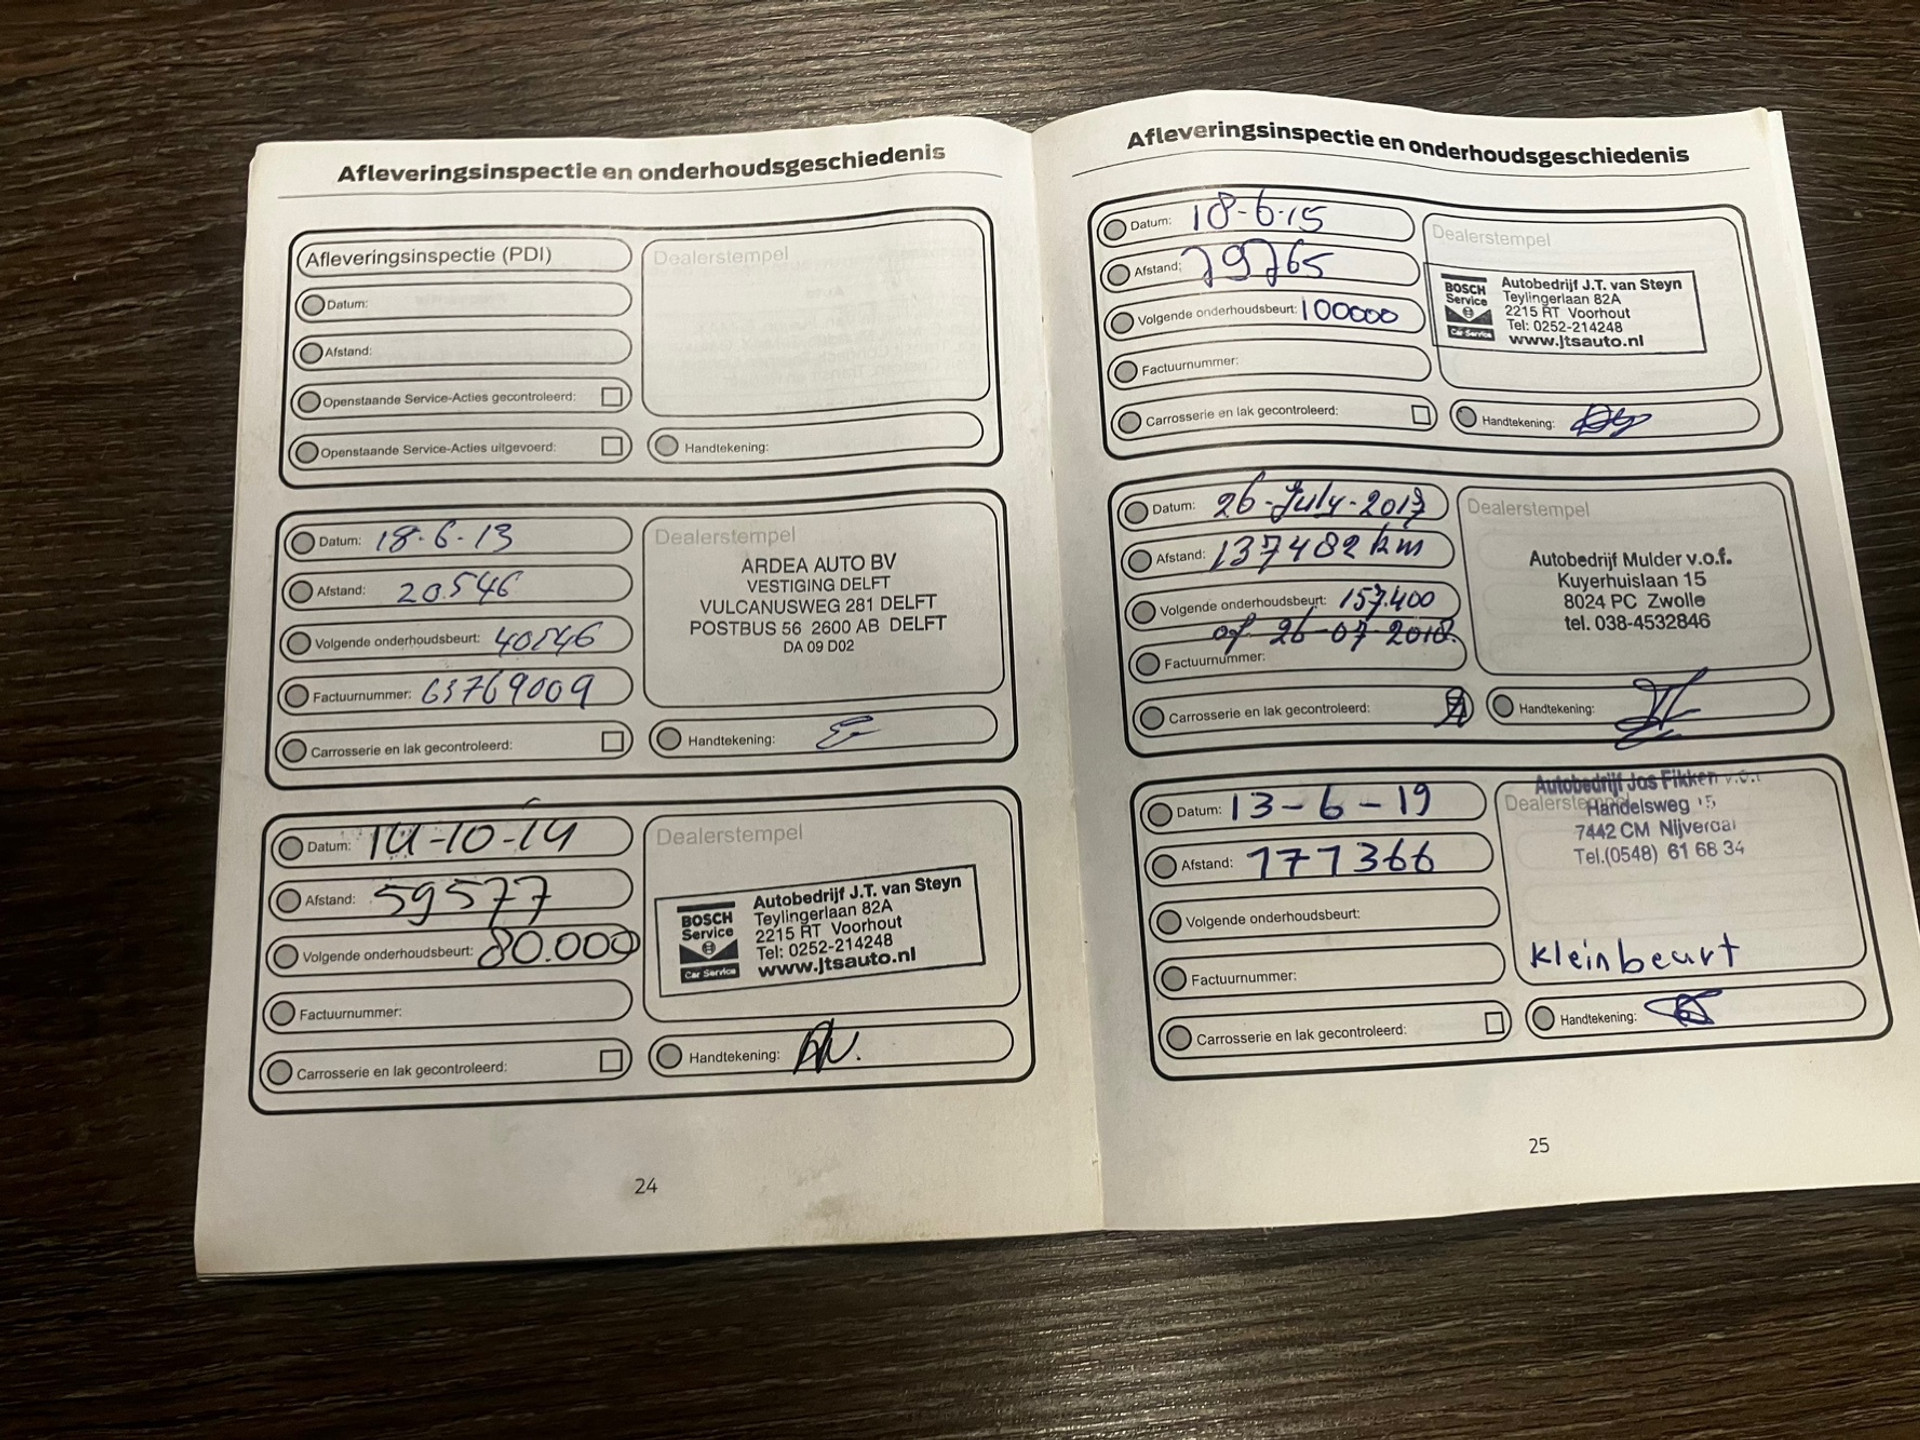 Afleveringsinspectie en onderhoudsgeschiedenis
Afleveringsinspectie (PDI)
Datum:
Afstand:
Openstaande Service-Acties gecontroleerd:
Openstaande Service-Acties uitgevoerd:
Dealerstempel
Handtekening:
Datum: 18-6-13
Afstand: 20.546
Volgende onderhoudsbeurt: 40546
Factuurnummer: 63769009
Carrosserie en lak gecontroleerd:
Dealerstempel
ARDEA AUTO BV
VESTIGING DELFT
VULCANUSWEG 281 DELFT
POSTBUS 56 2600 AB DELFT
DA 09 D02
Handtekening:
Datum: 14-10-14
Afstand: 59577
Volgende onderhoudsbeurt: 80.000
Factuurnummer:
Carrosserie en lak gecontroleerd:
Dealerstempel
BOSCH
Service
Car Service
Autobedrijf J.T. van Steyn
Teylingerlaan 82A
2215 RT Voorhout
Tel: 0252-214248
www.jtsauto.nl
Handtekening:
24
Afleveringsinspectie en onderhoudsgeschiedenis
Datum: 18-6-15
Afstand: 79765
Volgende onderhoudsbeurt: 100000
Factuurnummer:
Carrosserie en lak gecontroleerd:
Dealerstempel
BOSCH
Service
Car Service
Autobedrijf J.T. van Steyn
Teylingerlaan 82A
2215 RT Voorhout
Tel: 0252-214248
www.jtsauto.nl
Handtekening:
Datum: 26-July-2017
Afstand: 137482 km
Volgende onderhoudsbeurt: 157.400
of 26-07-2018.
Factuurnummer:
Carrosserie en lak gecontroleerd:
Dealerstempel
Autobedrijf Mulder v.o.f.
Kuyerhuislaan 15
8024 PC Zwolle
tel. 038-4532846
Handtekening:
Datum: 13-6-19
Afstand: 177366
Volgende onderhoudsbeurt:
Factuurnummer:
Carrosserie en lak gecontroleerd:
Autobedrijf Jos Fikken v.o.f
Dealerstempel
Handelsweg 15
7442 CM Nijverdal
Tel.(0548) 61 68 34
kleinbeurt
Handtekening:
25